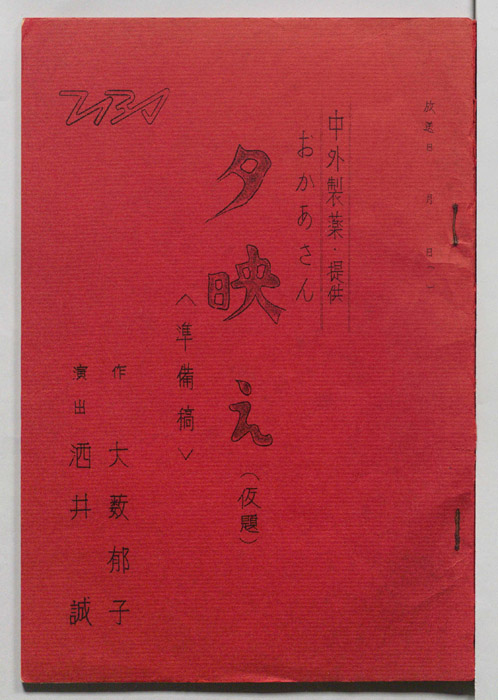 放送日 月 日( )
中外製薬・提供
おかあさん
夕映え(仮題)
〈準備稿〉
作 大薮郁子
演出 酒井 誠
TBS